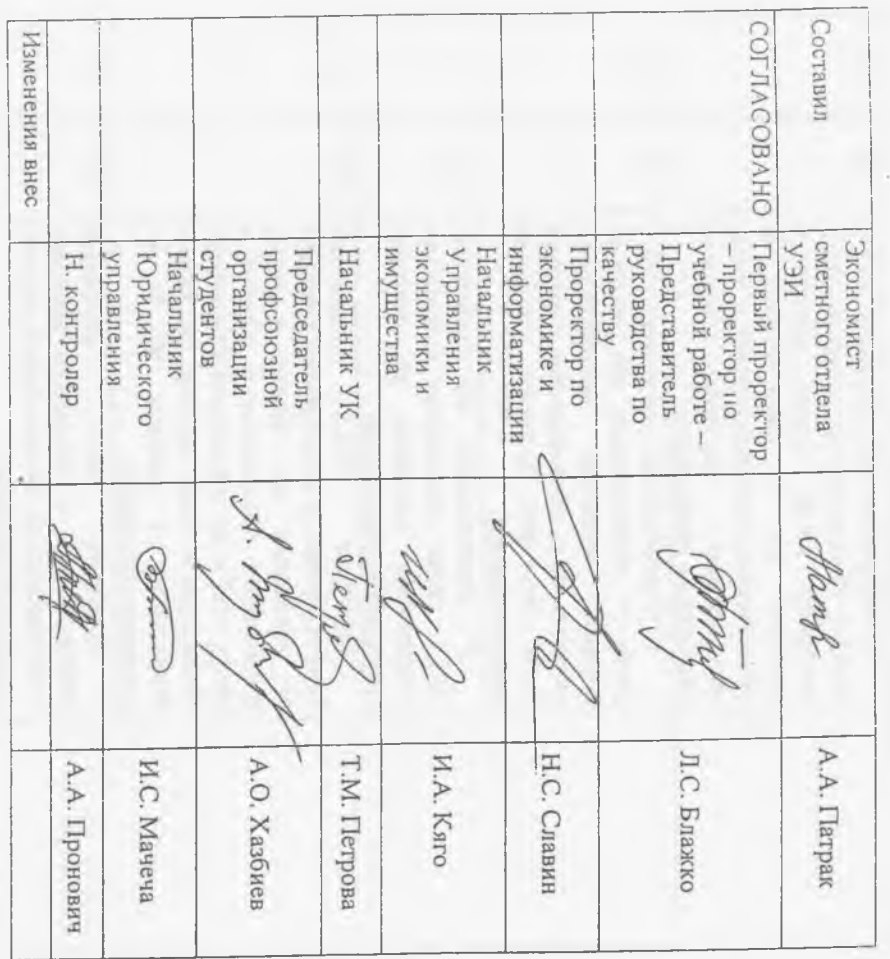 Составил
Экономист
сметного отдела
УЭИ
А.А. Патрак
СОГЛАСОВАНО
Первый проректор
– проректор по
учебной работе –
Представитель
руководства по
качеству
Л.С. Блажко
Проректор по
экономике и
информатизации
Н.С. Славин
Начальник
Управления
экономики и
имущества
И.А. Кяго
Начальник УК
Т.М. Петрова
Председатель
профсоюзной
организации
студентов
А.О. Хазбиев
Начальник
Юридического
управления
И.С. Мачеча
Н. контролер
А.А. Пронович
Изменения внес